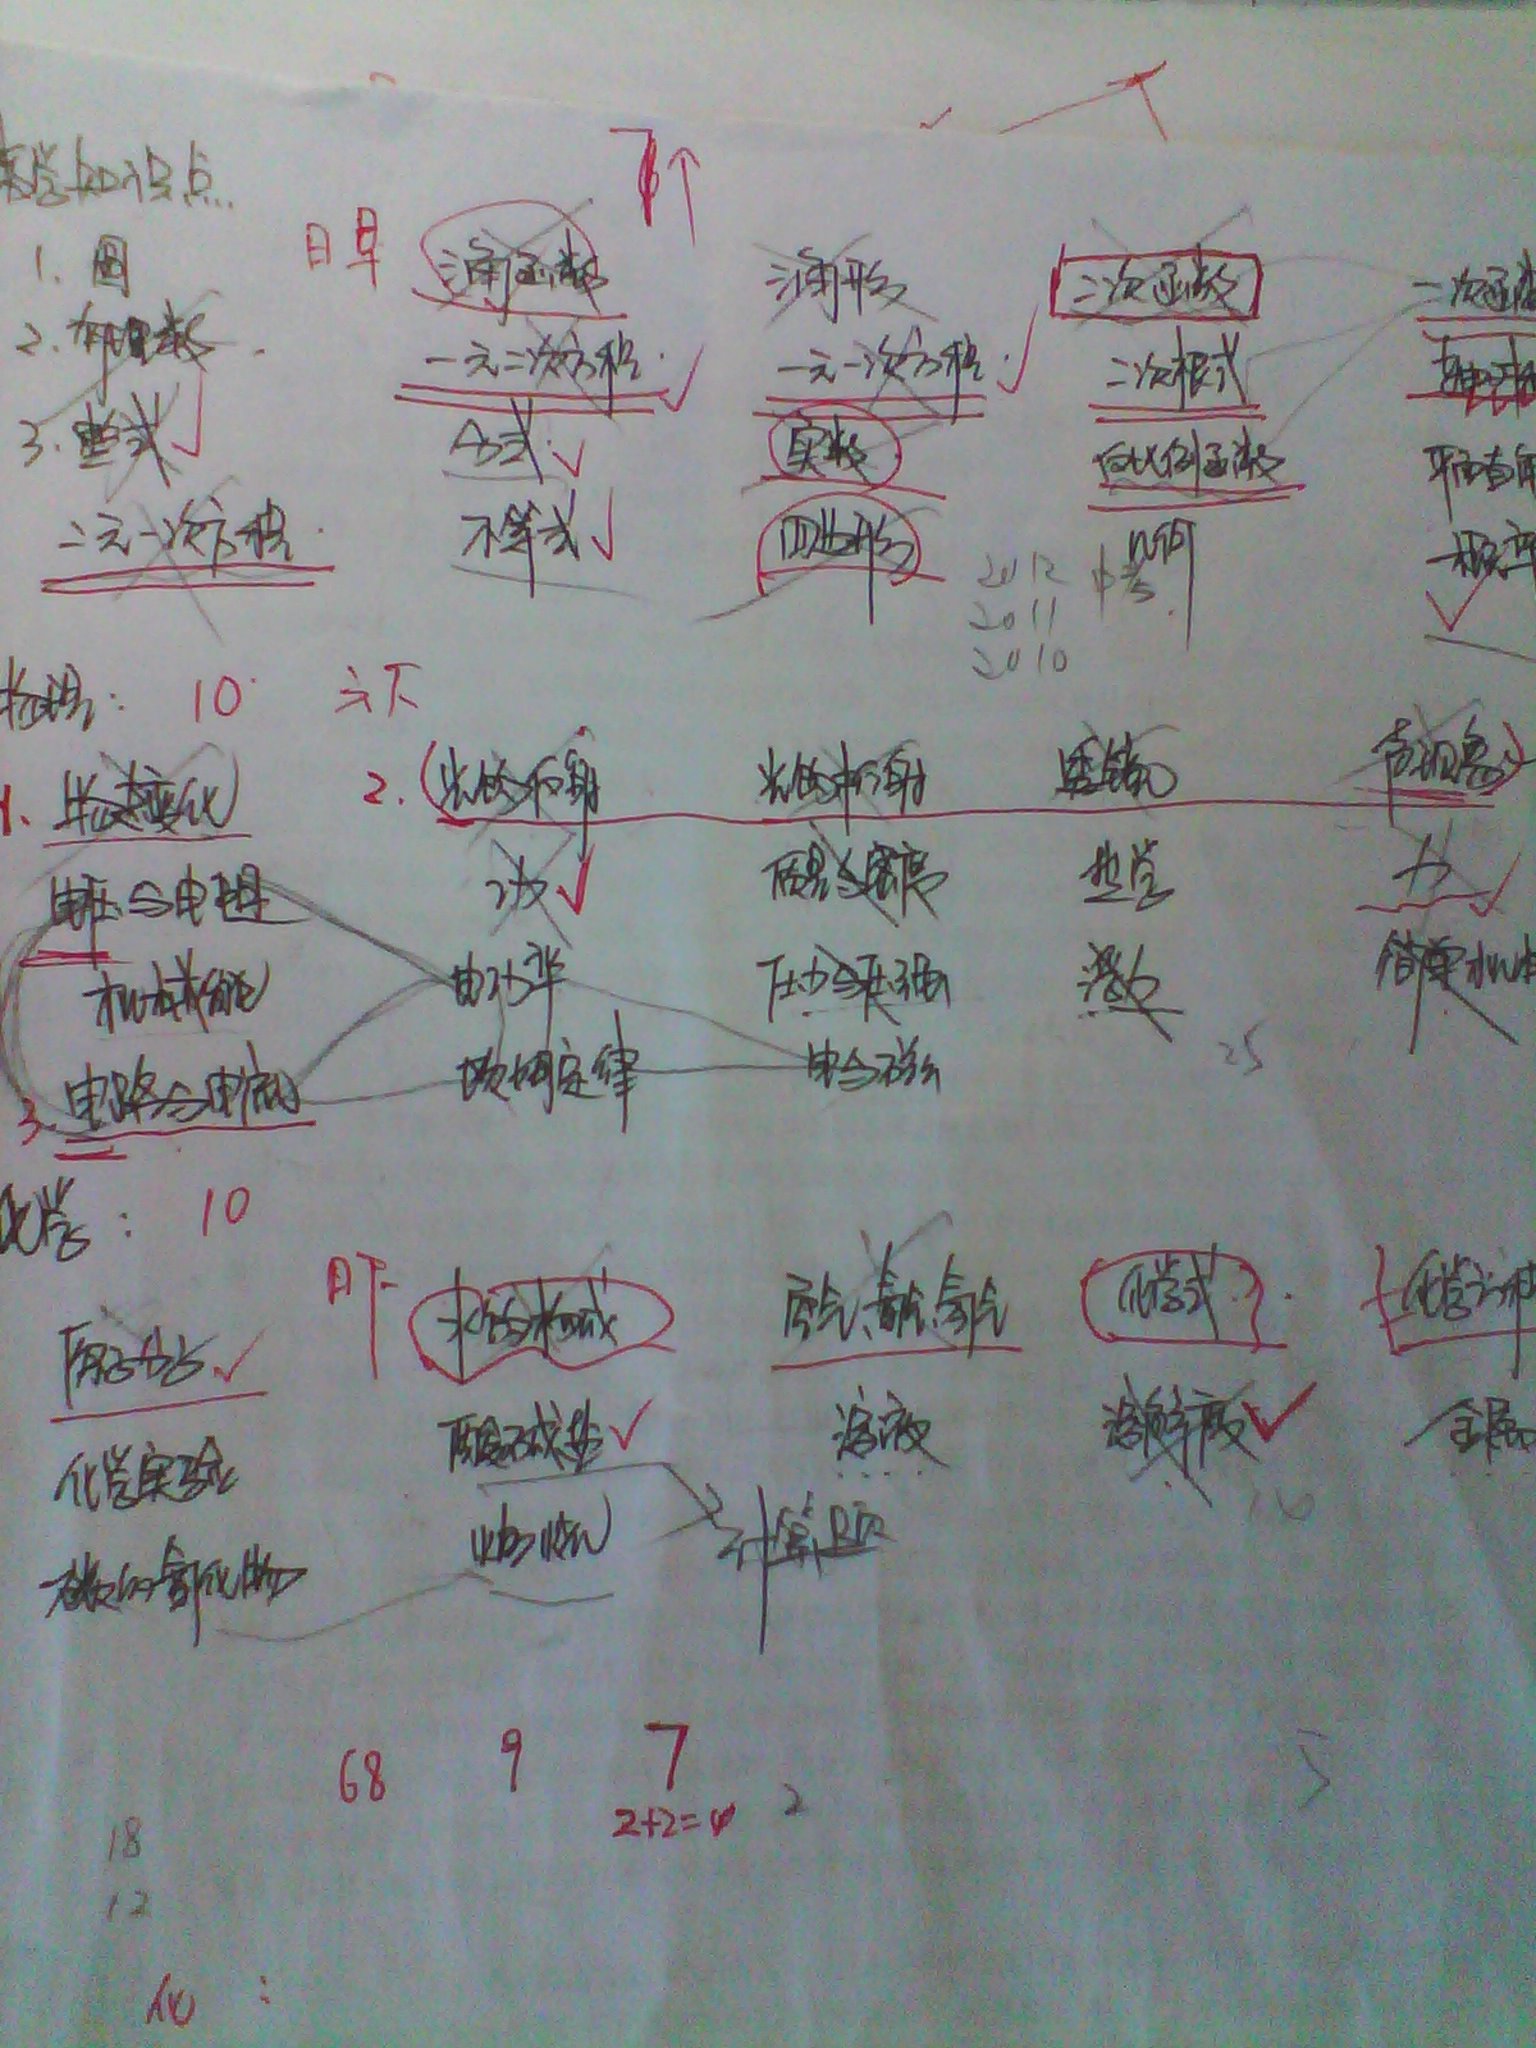 数学知识点...
1. 圆 日早 三角函数 三角形 二次函数 一次函数
2. 有理数 一元二次方程 一元一次方程 二次根式
3. 整式 分式 实数 反比例函数 平面直角
二元一次方程 不等式 四边形 几何 概率
2012 中考
2011
2010
物理: 10 六下
1. 物态变化 2. (光的反射 光的折射 透镜 声现象)
电压与电阻 功 质量与密度 热学 力
机械能 电功率 压力与压强 浮力 简单机械
3. 电路与电流 欧姆定律 电与磁
25
化学: 10
日下 水的构成 氧气、氢气 化学式 化学方程
原子分子 酸碱盐 溶液 溶解度 金属
化学实验 燃烧 计算题
碳的氧化物
68 9 7
2+2=4 2 5
18
12